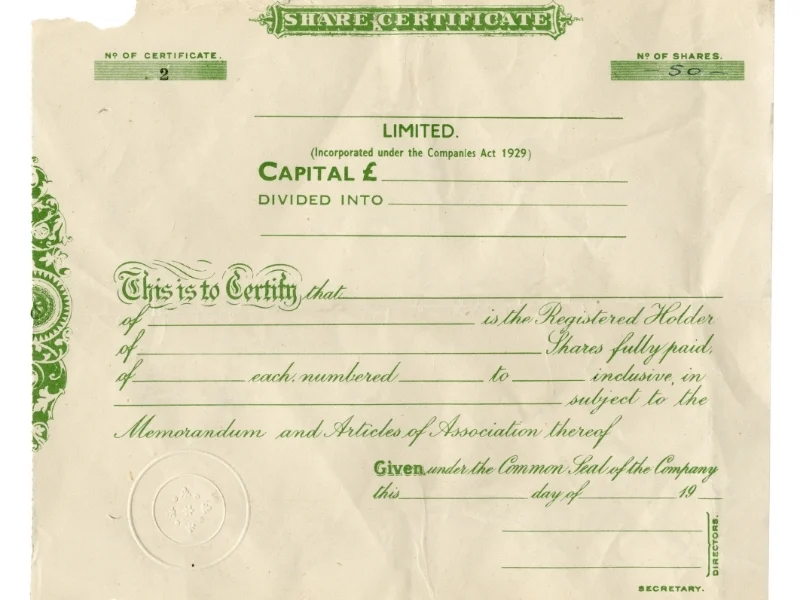 SHARE CERTIFICATE
Nº OF CERTIFICATE.
2
Nº OF SHARES.
— 50 —
LIMITED.
(Incorporated under the Companies Act 1929)
CAPITAL £
DIVIDED INTO
This is to Certify that
of is the Registered Holder
of Shares fully paid,
of each, numbered to inclusive, in
subject to the
Memorandum and Articles of Association thereof
Given, under the Common Seal of the Company
this day of 19
DIRECTORS.
SECRETARY.